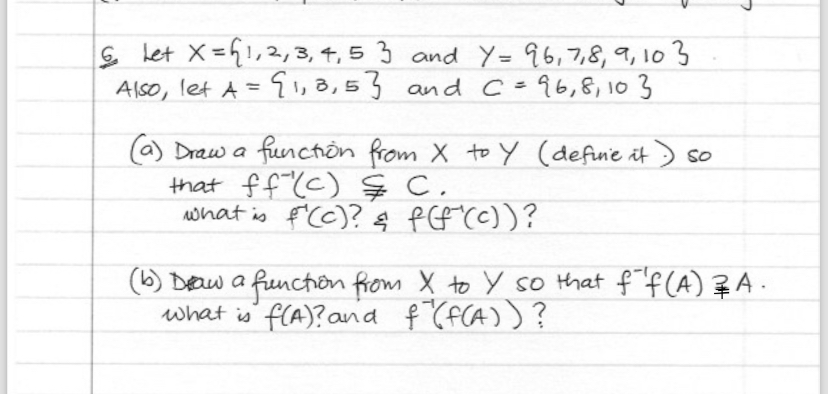 6 Let X = {1,2,3,4,5} and Y = {6,7,8,9,10}
Also, let A = {1,3,5} and C = {6,8,10}
(a) Draw a function from X to Y (define it :) so
that f f⁻¹(C) ⊊ C.
what is f⁻¹(C)? & f(f⁻¹(C))?
(b) Draw a function from X to Y so that f⁻¹f(A) ⊋ A.
what is f(A)? and f⁻¹(f(A))?